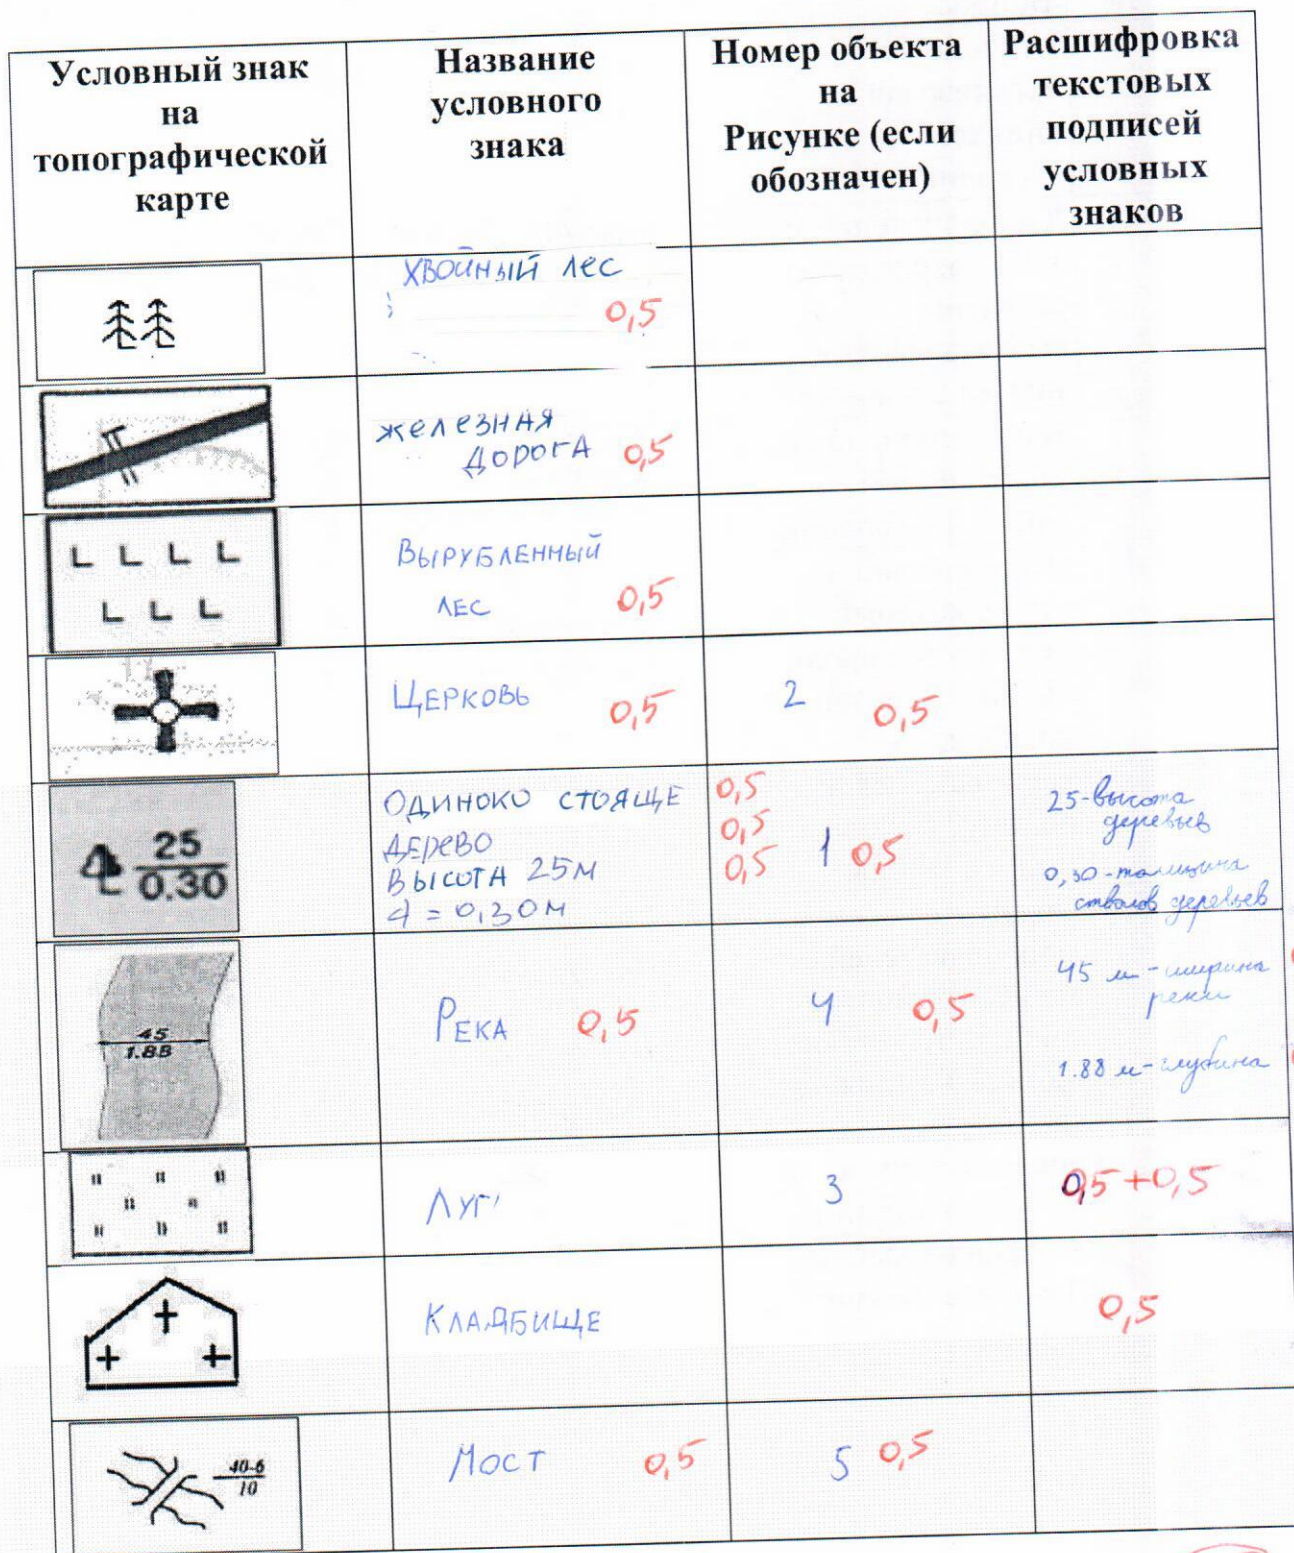 Условный знак
на
топографической
карте
Название
условного
знака
Номер объекта
на
Рисунке (если
обозначен)
Расшифровка
текстовых
подписей
условных
знаков
хвойный лес
0,5
железная
дорога 0,5
Вырубленный
лес 0,5
Церковь 0,5
2 0,5
25
0.30
Одиноко стояще
дерево
высота 25м
d = 0,30м
0,5
0,5
0,5
1 0,5
25-высота
деревьев
0,30-толщина
стволов деревьев
45
1.88
Река 0,5
4 0,5
45 м - ширина
реки
1.88 м - глубина
Луг
3
0,5+0,5
Кладбище
0,5
40-6
10
Мост 0,5
5 0,5